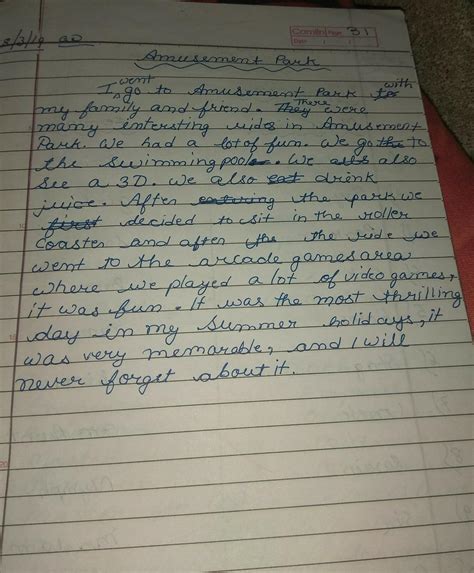 Camlin Page 31
Date / /
8/3/19 QD
Amusement Park
I went go to Amusement Park with
my family and friend. They There were
many entersting rides in Amusement
Park. We had a lot of fun. We go to
the Swimming pool. We also
See a 3D. We also eat drink
juice. After entering the park we
first decided to sit in the roller
coaster and after the the ride we
went to the arcade games area
where we played a lot of video games,
it was fun. It was the most thrilling
day in my summer holidays, it
was very memorable, and I will
never forget about it.
10
20